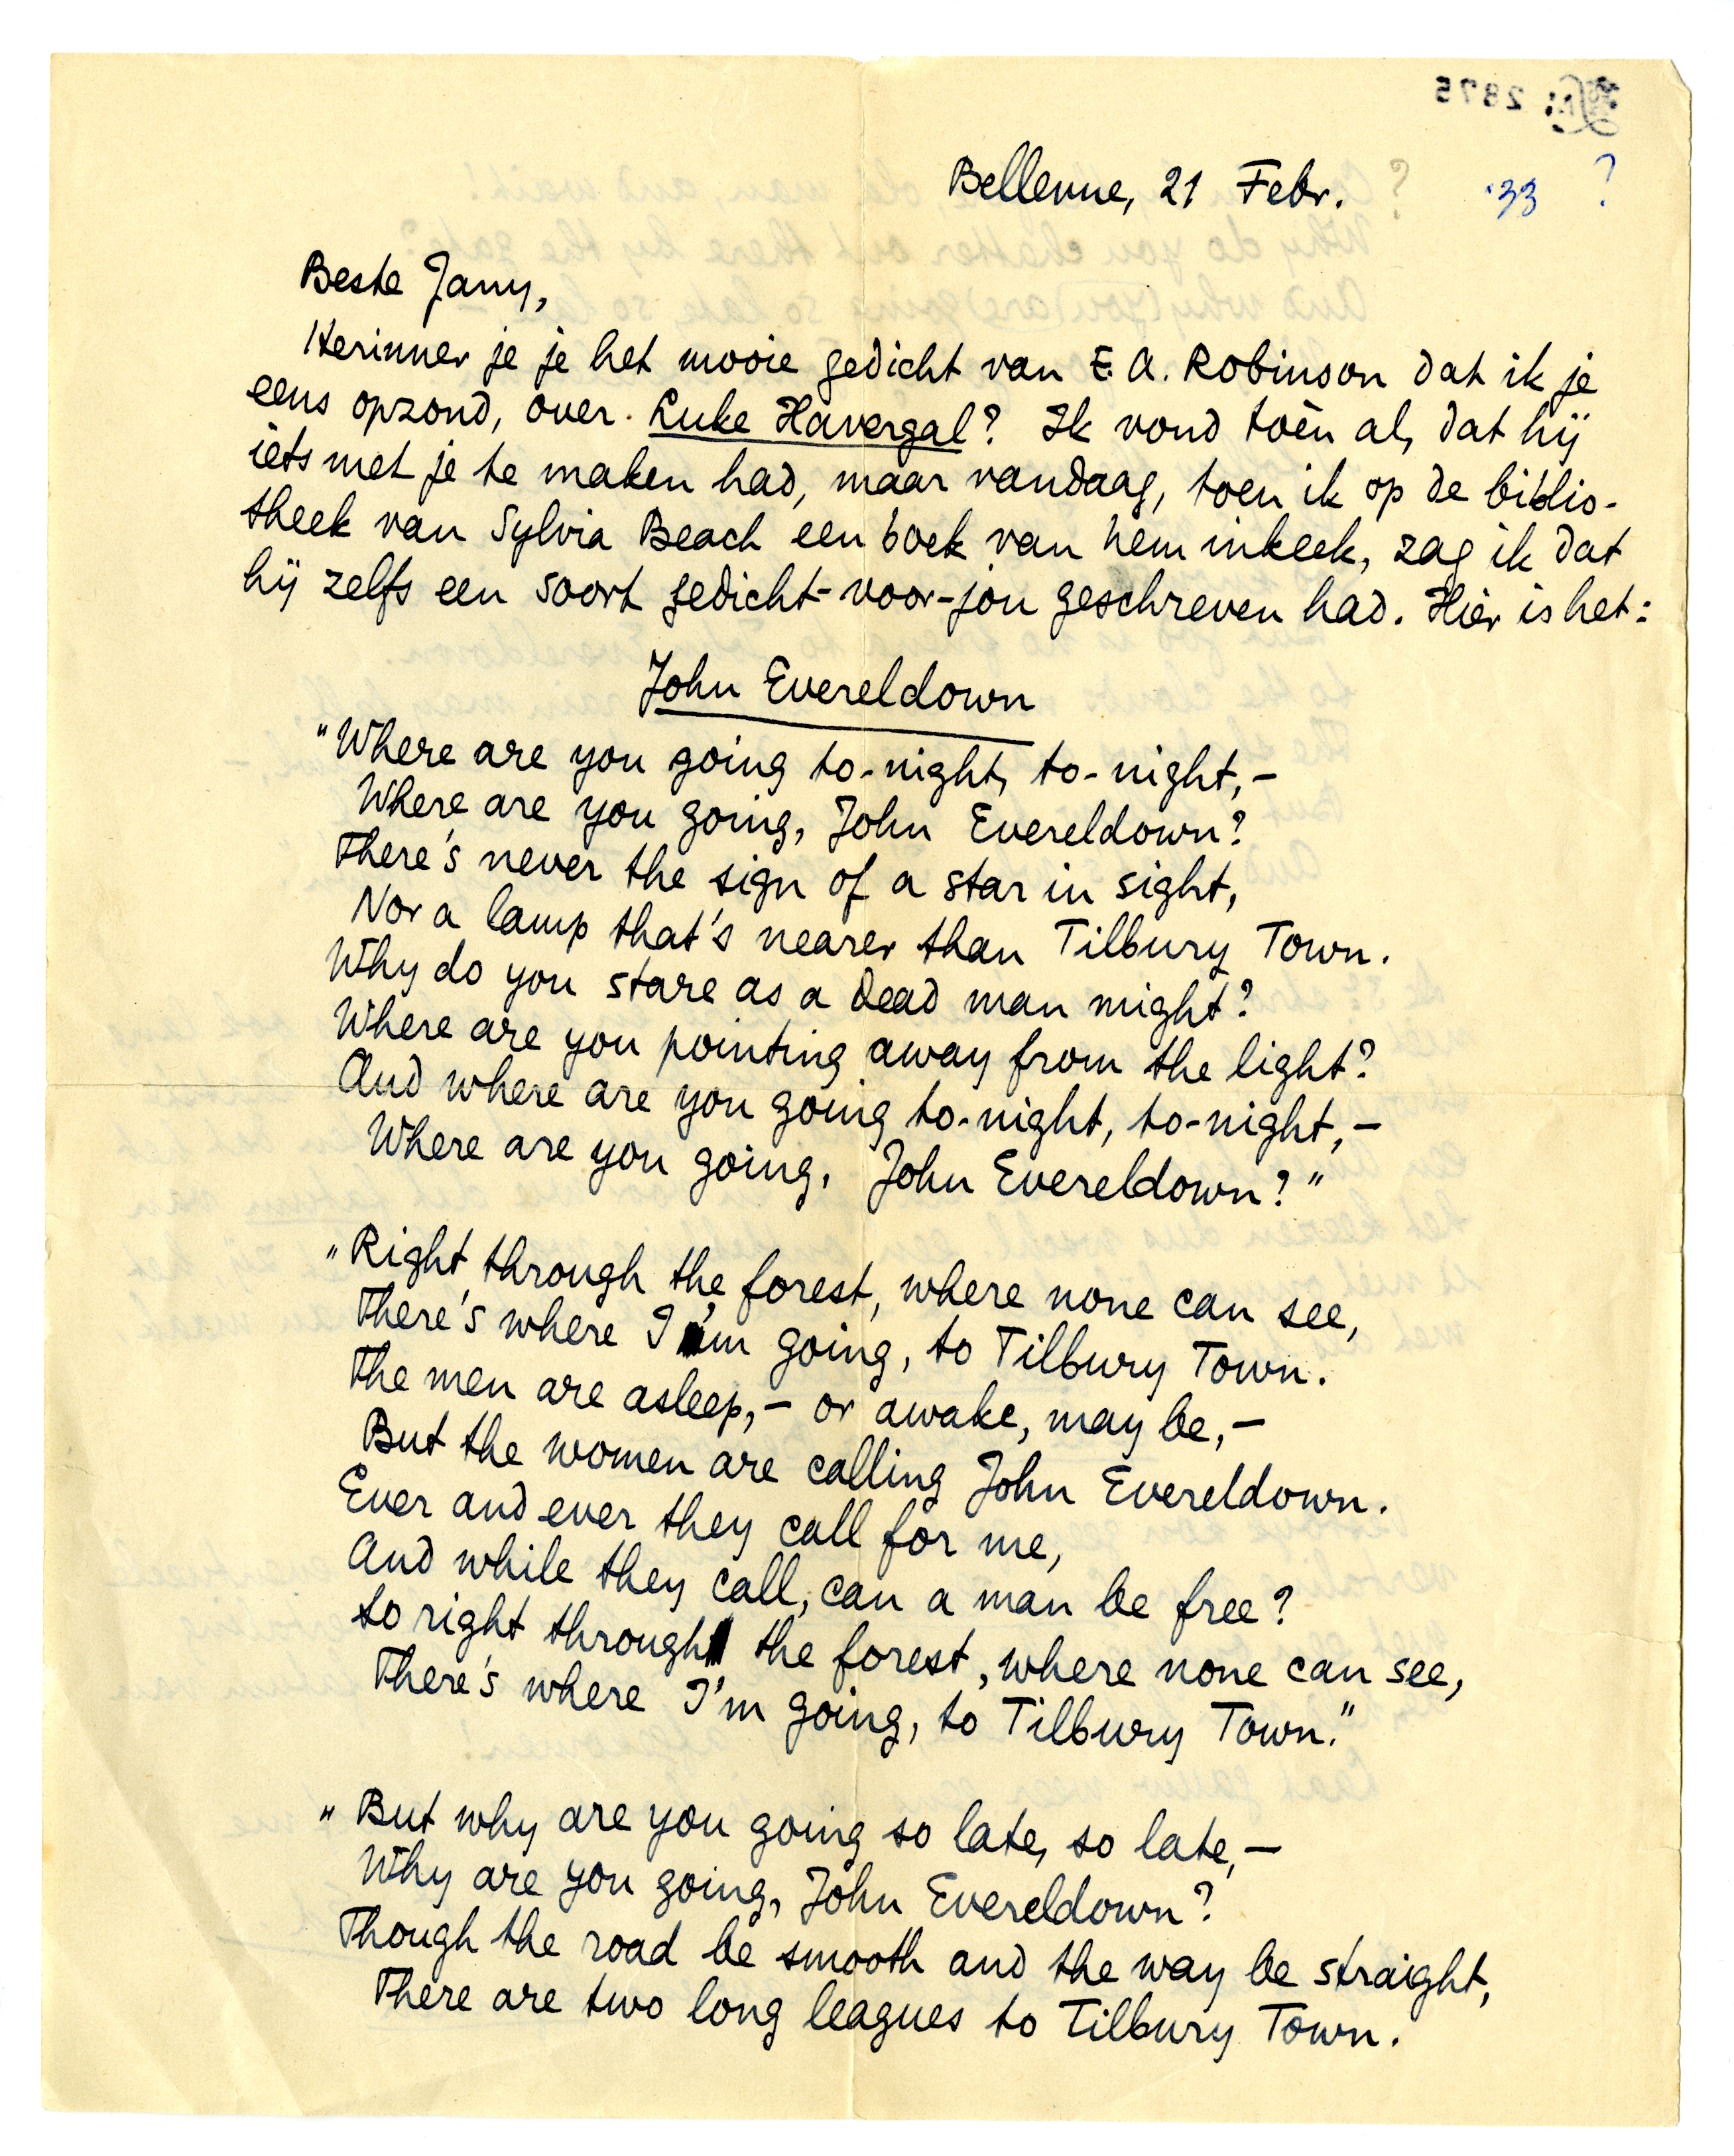 2875
Bellevue, 21 Febr. ? '33 ?
Beste Jany,
Herinner je je het mooie gedicht van E. A. Robinson dat ik je
eens opzond, over Luke Havergal? Ik vond toèn al, dat hij
iets met je te maken had, maar vandaag, toen ik op de biblio-
theek van Sylvia Beach een boek van hem inkeek, zag ik dat
hij zelfs een soort gedicht-voor-jou geschreven had. Hier is het:
John Evereldown
"Where are you going to-night, to-night,–
Where are you going, John Evereldown?
There's never the sign of a star in sight,
Nor a lamp that's nearer than Tilbury Town.
Why do you stare as a dead man might?
Where are you pointing away from the light?
And where are you going to-night, to-night,–
Where are you going, John Evereldown?"
„Right through the forest, where none can see,
There's where I'm going, to Tilbury Town.
The men are asleep,– or awake, may be,–
But the women are calling John Evereldown.
Ever and ever they call for me,
And while they call, can a man be free?
So right through the forest, where none can see,
There's where I'm going, to Tilbury Town."
„But why are you going so late, so late,–
Why are you going, John Evereldown?
Though the road be smooth and the way be straight,
There are two long leagues to Tilbury Town.